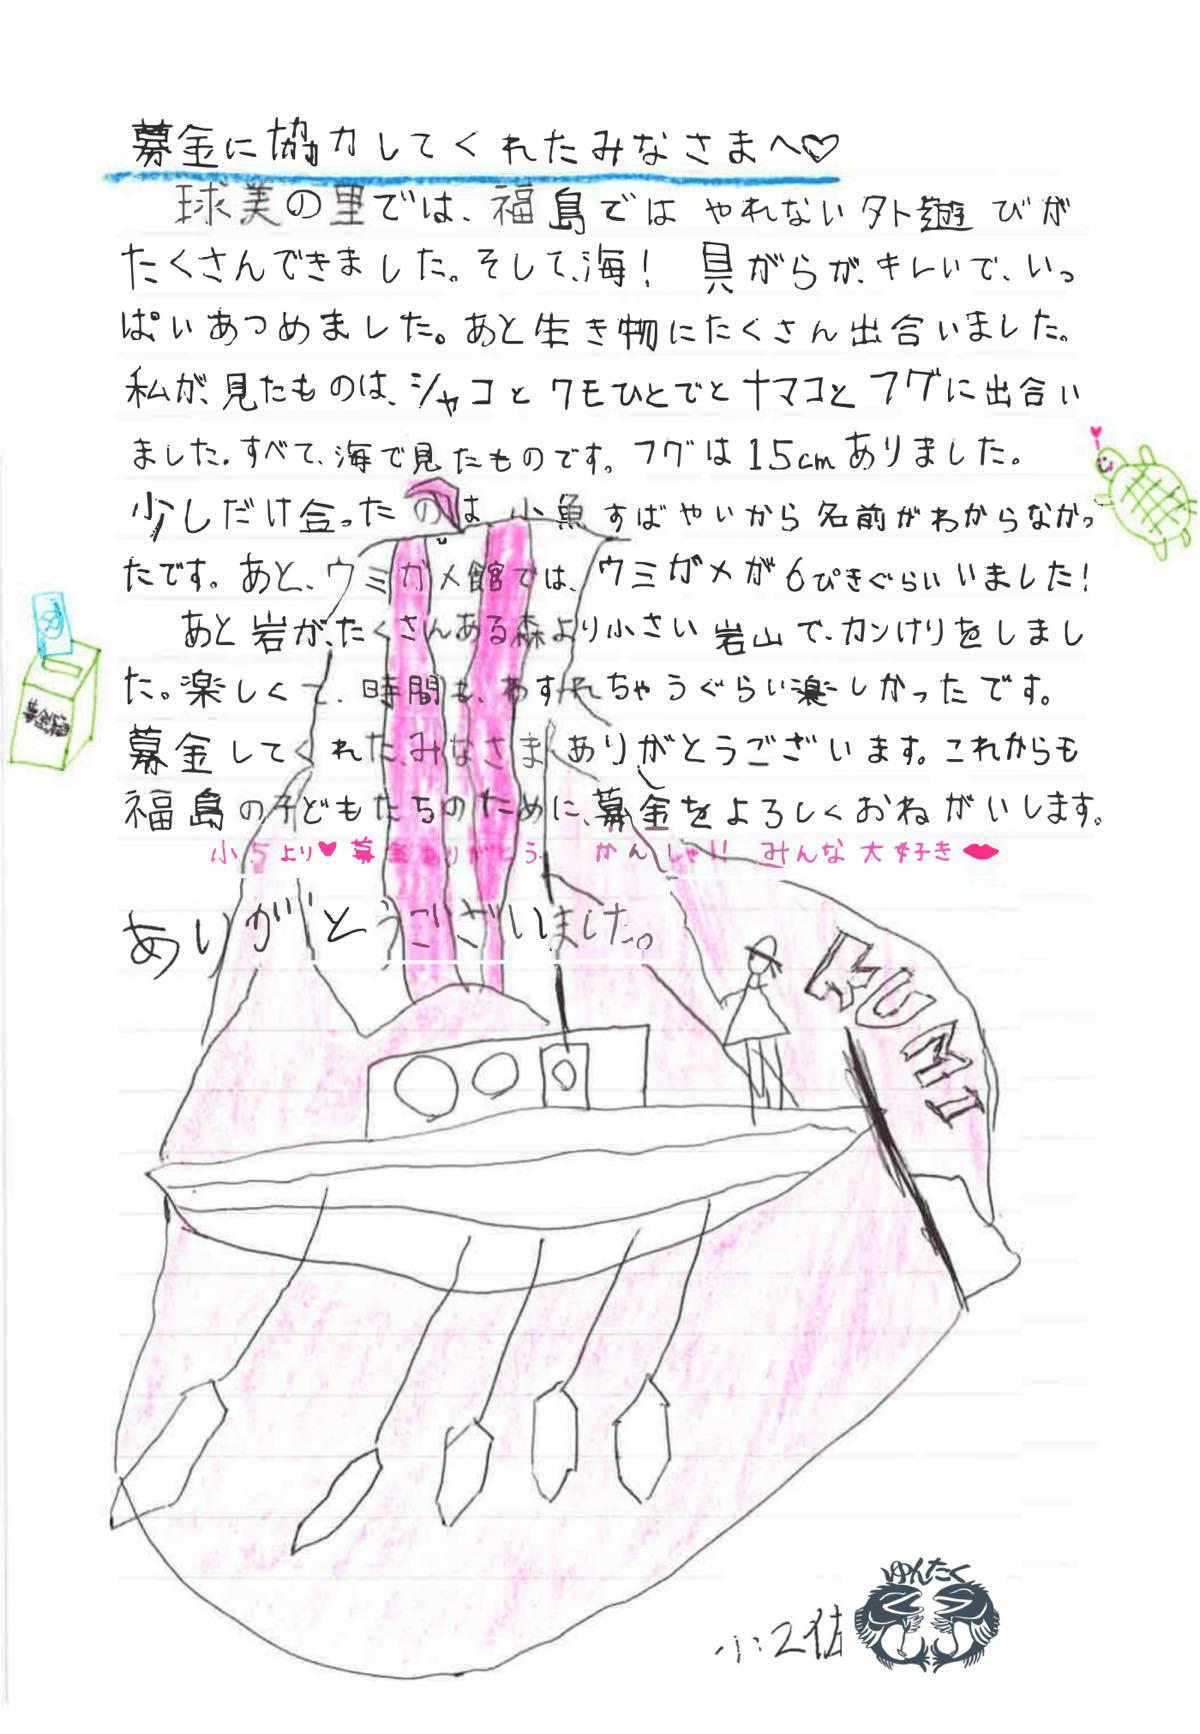 募金に協力してくれたみなさまへ♡
球美の里では、福島ではやれない外遊びが
たくさんできました。そして、海！ 貝がらが、キレいで、いっ
ぱいあつめました。あと生き物にたくさん出合いました。
私が、見たものは、シャコとクモひとでとナマコとフグに出合い
ました。すべて、海で見たものです。フグは15cmありました。
少しだけ合ったのは、小魚すばやいから名前がわからなかっ
たです。あと、ウミガメ館では、ウミガメが6ぴきぐらいいました！
あと岩が、たくさんある森より小さい岩山で、カンけりをしまし
た。楽しくて、時間も、わすれちゃうぐらい楽しかったです。
募金してくれたみなさまありがとうございます。これからも
福島の子どもたちのために、募金をよろしくおねがいします。
小5より♥募金ありがとう かんしゃ!! みんな大好き
ありがとうございました。
募金箱
KUMI
ゆんたく
小2